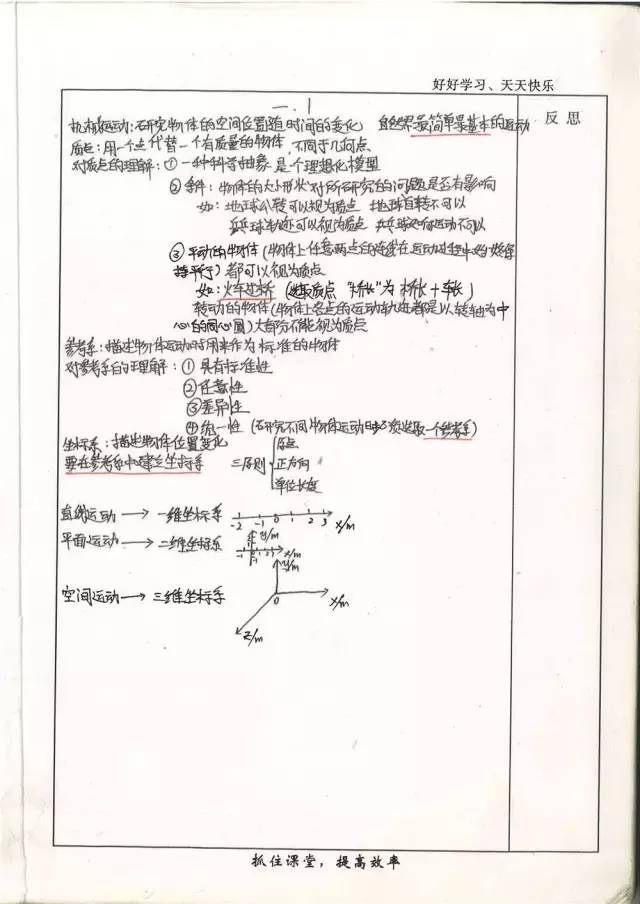 好好学习、天天快乐
一.1
机械运动:研究物体的空间位置随时间的变化 自然界最简单最基本的运动
反思
质点:用一个点代替一个有质量的物体,不同于几何点.
对质点的理解:①一种科学抽象,是个理想化模型
②条件:物体的大小形状对所研究的问题是否有影响
如:地球公转可以视为质点 地球自转不可以
乒乓球轨迹可以视为质点 乒乓球运动不可以
③平动的物体(物体上任意两点的连线在运动过程中始终保
持平行)都可以视为质点
如:火车过桥 (选取质点 "桥长"为桥长+车长)
转动的物体(物体上各点的运动轨迹都是以转轴为中
心的同心圆)大部分不能视为质点
参考系:描述物体运动时用来作为标准的物体
对参考系的理解:①具有标准性
②任意性
③差异性
④统一性(研究不同物体运动时必须选取一个参考系)
坐标系:描述物体位置变化
要在参考系中建立坐标系
三原则
原点
正方向
单位长度
直线运动→一维坐标系
-2 -1 0 1 2 3 x/m
平面运动→二维坐标系
y/m
x/m
空间运动→三维坐标系
y/m
0
x/m
z/m
抓住课堂,提高效率